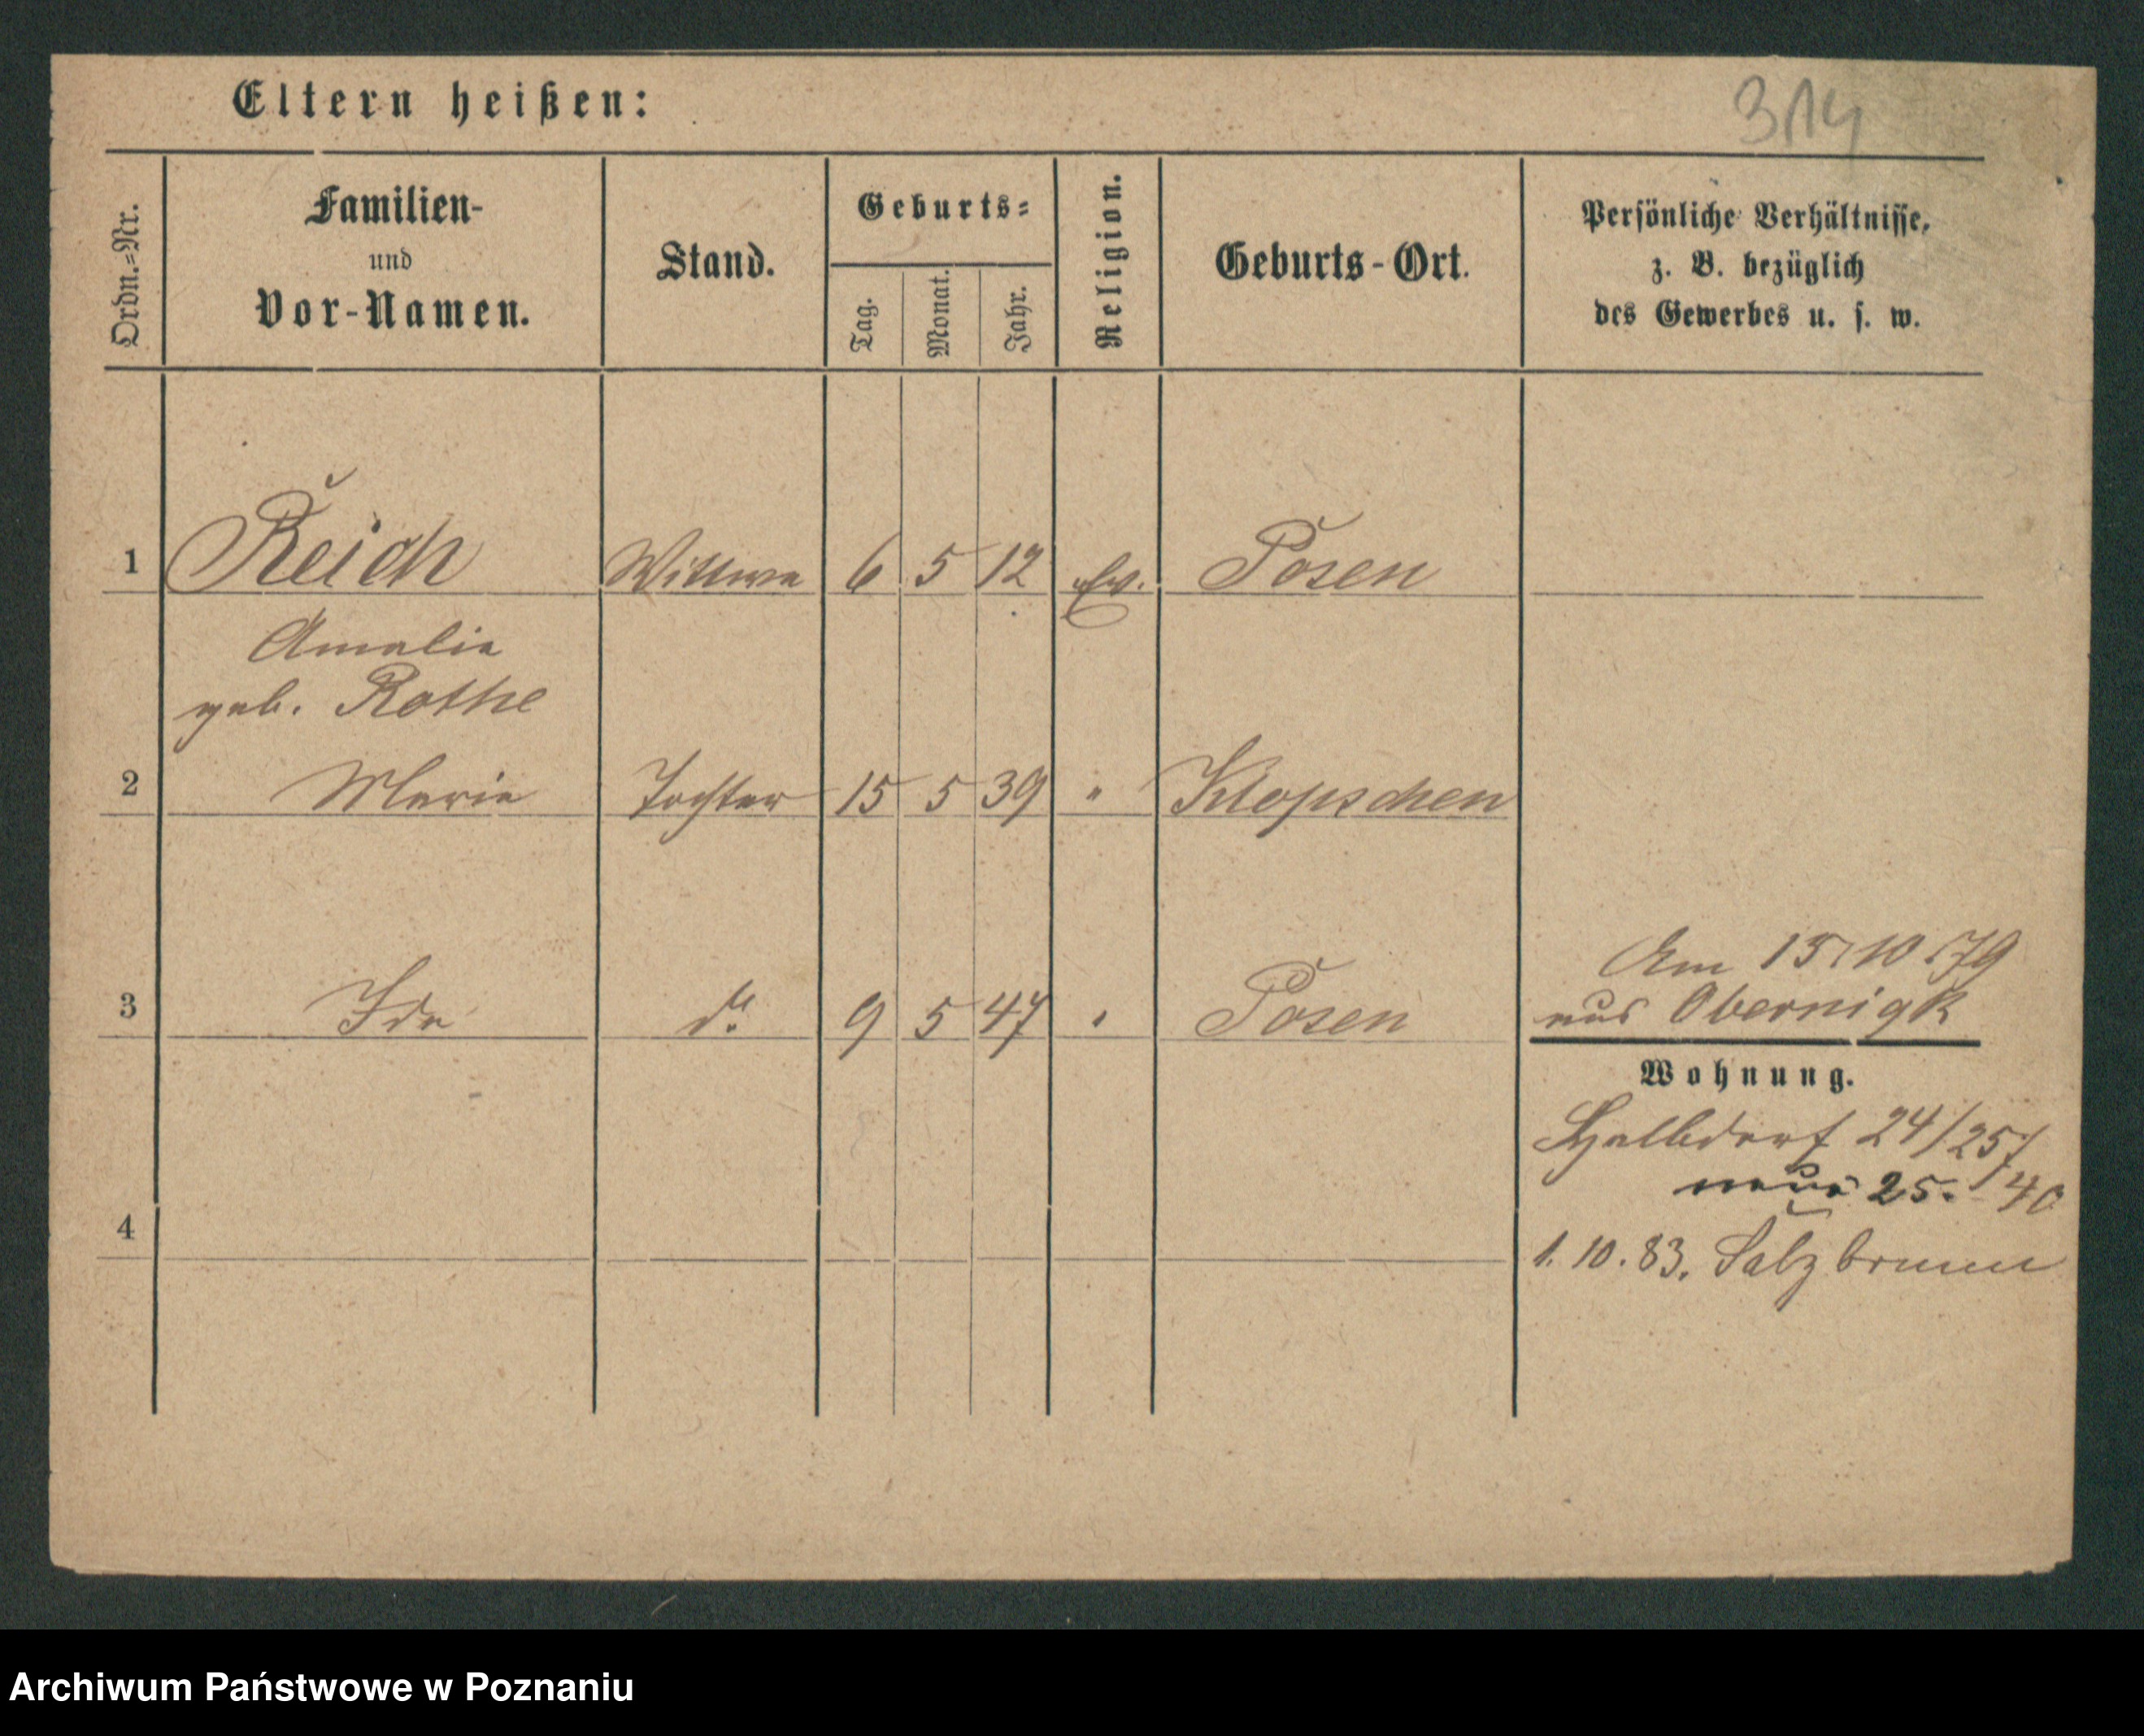 Eltern heißen:
314
Ordn.=Nr.
Familien-
und
Vor-Namen.
Stand.
Geburts=
Tag.
Monat.
Jahr.
Religion.
Geburts-Ort.
Persönliche Verhältnisse,
z. B. bezüglich
des Gewerbes u. s. w.
1 Reich Wittwe 6 5 12 Ev. Posen
Amalie
geb. Rothe
2 Marie Tochter 15 5 39 " Klopschen
3 Ida do. 9 5 47 " Posen
Am 15/10 79
aus Obernigk
Wohnung.
Halbdorf 24/25/
neue 25. 40
4
1. 10. 83. Salzbrunn
Archiwum Państwowe w Poznaniu